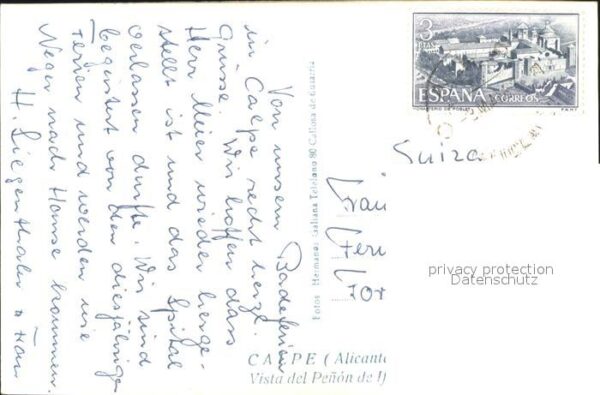 Von unserm Badeferien
in Calpe recht herzl.
Grüsse. Wir hoffen dass
Herr Meier wieder herge-
stellt ist und das Spital
verlassen durfte. Wir sind
begeistert von den diesjährigen
Ferien und werden wie
Neger nach Hause kommen.
H. Siegenthaler u Frau
3
PTAS
ESPAÑA
CORREOS
MONASTERIO DE POBLET
F.N.M.T.
Suiza
Fotos Hermanos Galiana Telefono 80 Callosa de Ensarria
CALPE (Alicante
Vista del Peñón de If
privacy protection
Datenschutz